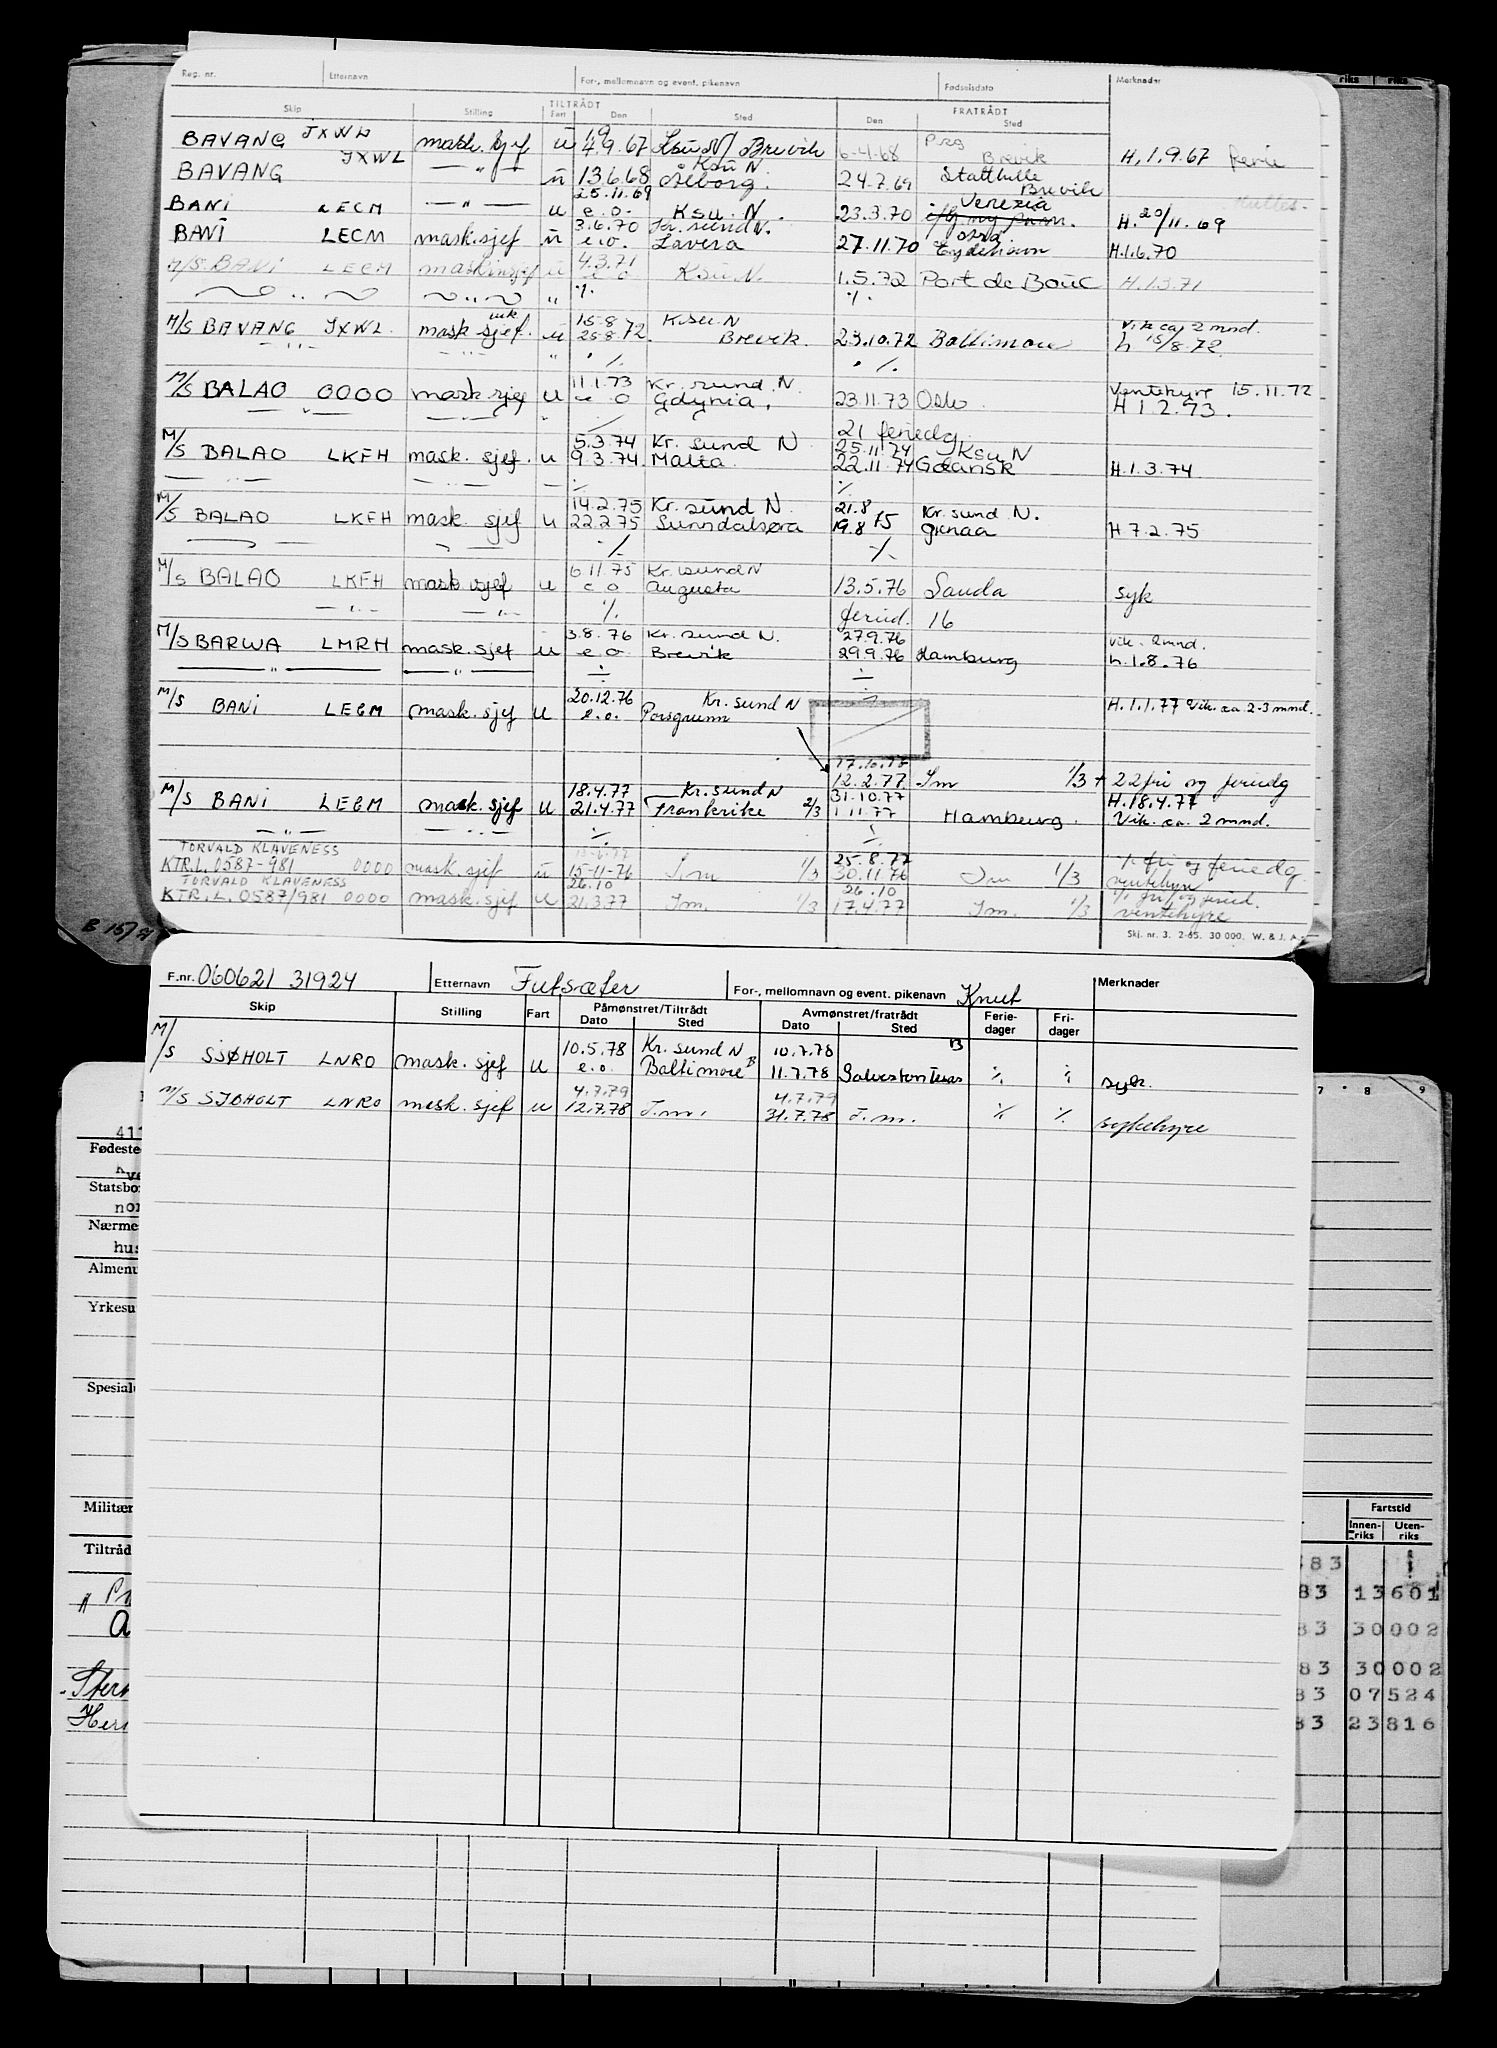 Reg. nr. Etternavn For-, mellomnavn og event. pikenavn Fødselsdato Merknader
TILTRÅDT FRATRÅDT
Skip Stilling Fart Den Sted Den Sted
BAVANG JXWL mask. sjef u 1.9 4.9.67 Ksu N/ Brevik 6.4.68 Prg Brevik H. 1.9.67 ferie
BAVANG JXWL — " — u 13.6.68 Ksu N Ålborg. 24.7.69 Statthelle Brevik
BANI LECM — " — u 25.11.69 e.o. Ksu. N. 23.3.70 Venezia H. 20/11.69
BANI LECM mask. sjef u 3.6.70 e.o. Kr. sund N. Lavera 27.11.70 Eydehavn H.1.6.70
M/S BANI LECM maskinsjef u 4.3.71 e o Ksu N. 1.5.72 Port de Bouc H. 1.3.71
" " " ·/· ·/·
M/S BAVANG JXWL. mask sjef. vik u 15.8 25.8.72. Ksu. N Brevik. 23.10.72 Baltimore Vik ca 2 mnd. h 15/8.72.
— " — — " — " ·/· ·/·
M/S BALAO OOOO mask sjef u 11.1.73 e o Kr. sund N. Gdynia, 23.11.73 Oslo Ventehyre 15.11.72 H 1 2.73.
21 feriedg
M/S BALAO LKFH mask. sjef. u 5.3.74 9.3.74 Kr. sund N Malta. 25.11.74 22.11.74 Ksu N Gdansk H.1.3.74
·/· ·/·
M/S BALAO LKFH mask. sjef u 14.2.75 22.2.75 Kr. sund N. Sunndalsøra 21.8 19.8 75 Kr. sund N. H 7.2.75
·/· ·/·
M/S BALAO LKFH mask sjef u 6 11.75 e o Kr. sund N Augusta 13.5.76 Sauda syk
— " — — " — ·/· feried. 16
M/S BARWA LMRH mask. sjef u 3.8.76 e o Kr. sund N. Brevik 27.9.76 29.9.76 Hamburg vik. 2mnd. h.1.8.76
— " — — " — ÷ ÷
M/S BANI LECM mask. sjef u 20.12.76 e.o. Kr. sund N Porsgrunn ÷ H.1.1.77 Vik. ca. 2-3 mnd.
17.10.78
12.2.77 Im 1/3 + 22 fri og feriedg
M/S BANI LECM mask. sjef u 18.4.77 21.4.77 Kr. sund N Frankrike 2/3 31.10.77 1 11.77 Hamburg. H.18.4.77 Vik. ca. 2 mnd.
— " — — " — ·/· ·/·
TORVALD KLAVENESS
KTR.L. 0587-981 OOOO mask sjef u 15-11-76 I.m 1/3 25.8.77 30.11.76 Im 1/3 ·/· fri og feriedg. ventehyre
TORVALD KLAVENESS
KTR.L. 0587/981 OOOO mask. sjef u 26.10 21.3.77 Im. 1/3 26.10 17.4.77 Im. 1/3 ·/· fri og feried. ventehyre
Skj. nr. 3. 2-65. 30 000. W. & J. A
F.nr. 060621 31924 Etternavn Futsæter For-, mellomnavn og event. pikenavn Knut Merknader
Skip Stilling Fart Påmønstret/Tiltrådt Dato Sted Avmønstret/fratrådt Dato Sted Ferie-dager Fri-dager
M/S SJØHOLT LNRO mask. sjef u 10.5.78 e.o. Kr. sund N Baltimore B 10.7.78 11.7.78 Galveston Texas B ·/· ·/· syk.
M/S SJØHOLT LNRO mask. sjef u 4.7.79 12.7.78 I.m. 4.7.79 31.7.78 I.m. ·/· ·/· sykehyre
7 8 9
Fødeste
Statsbo
nor
Nærme
hus
Almenu
Yrkesu
Spesial
Militær
Tiltråd
Fartstid
Innen-riks Uten-riks
83
83 13601
83 30002
83 30002
83 07524
83 23816